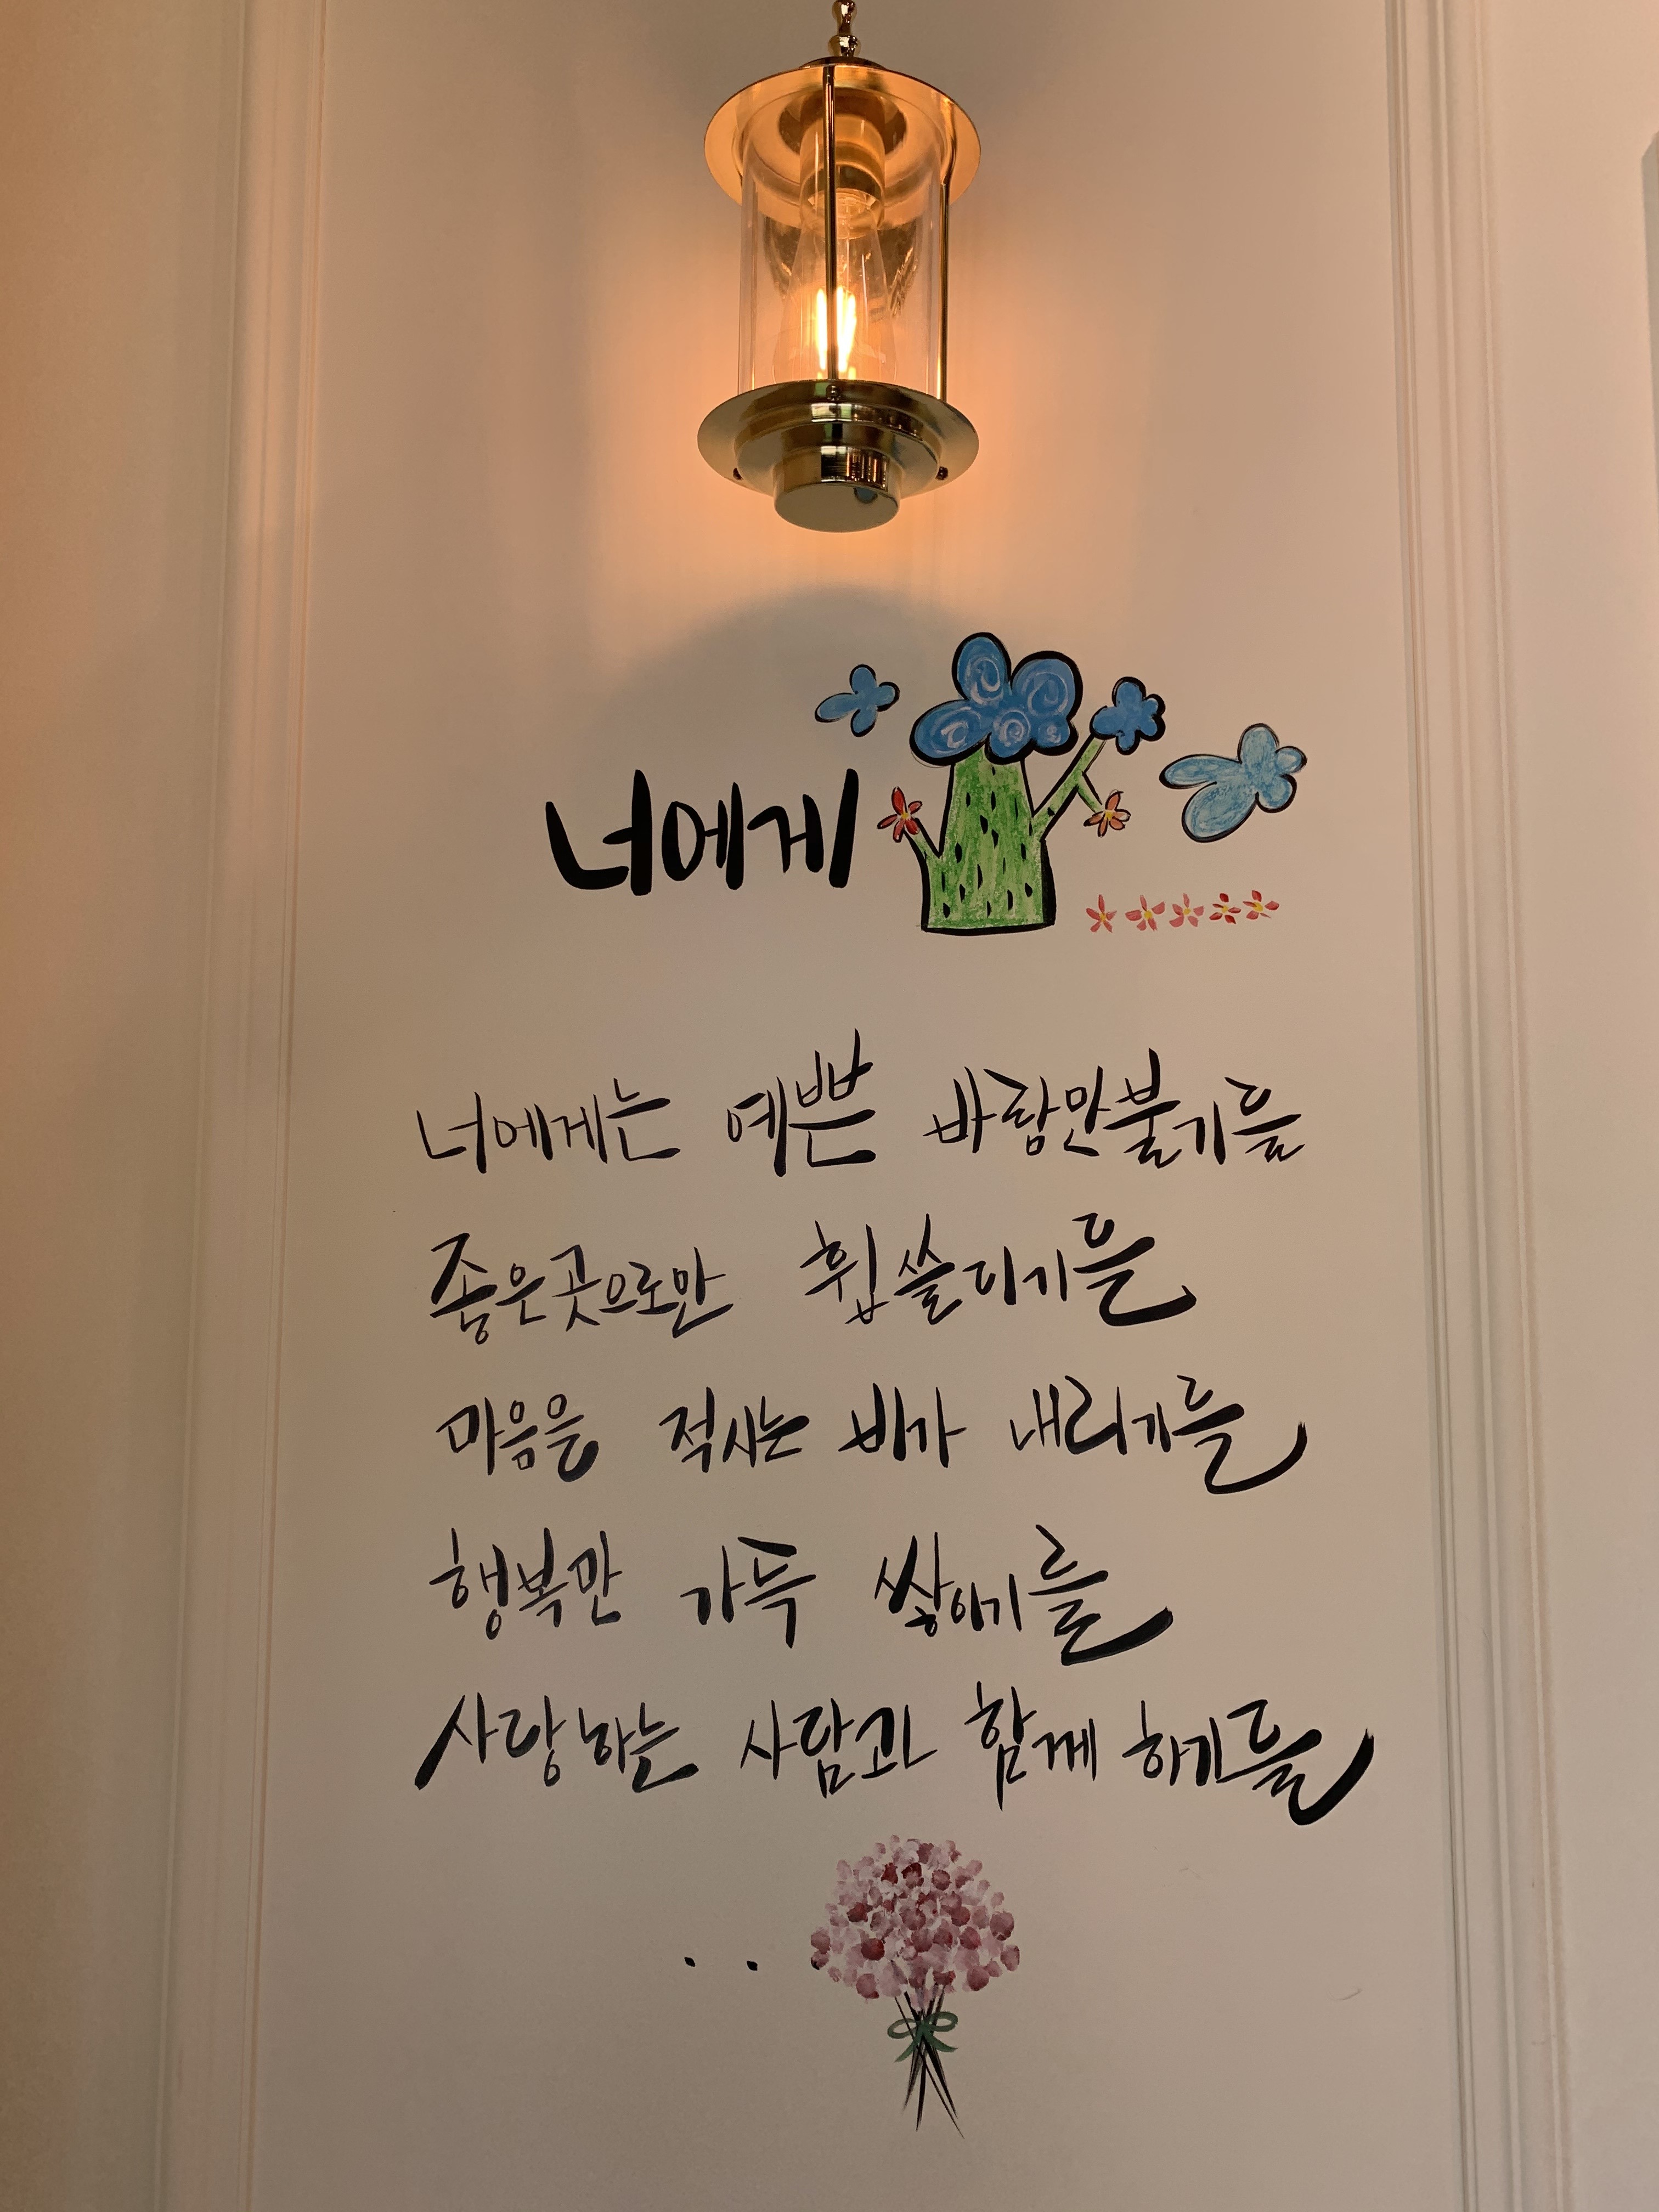 너에게
너에게는 예쁜 바람만불기를
좋은곳으로만 휩쓸디기를
마음을 적시는 비가 내리기를
행복만 가득 쌓이기를
사랑하는 사람과 함께 하기를
. .